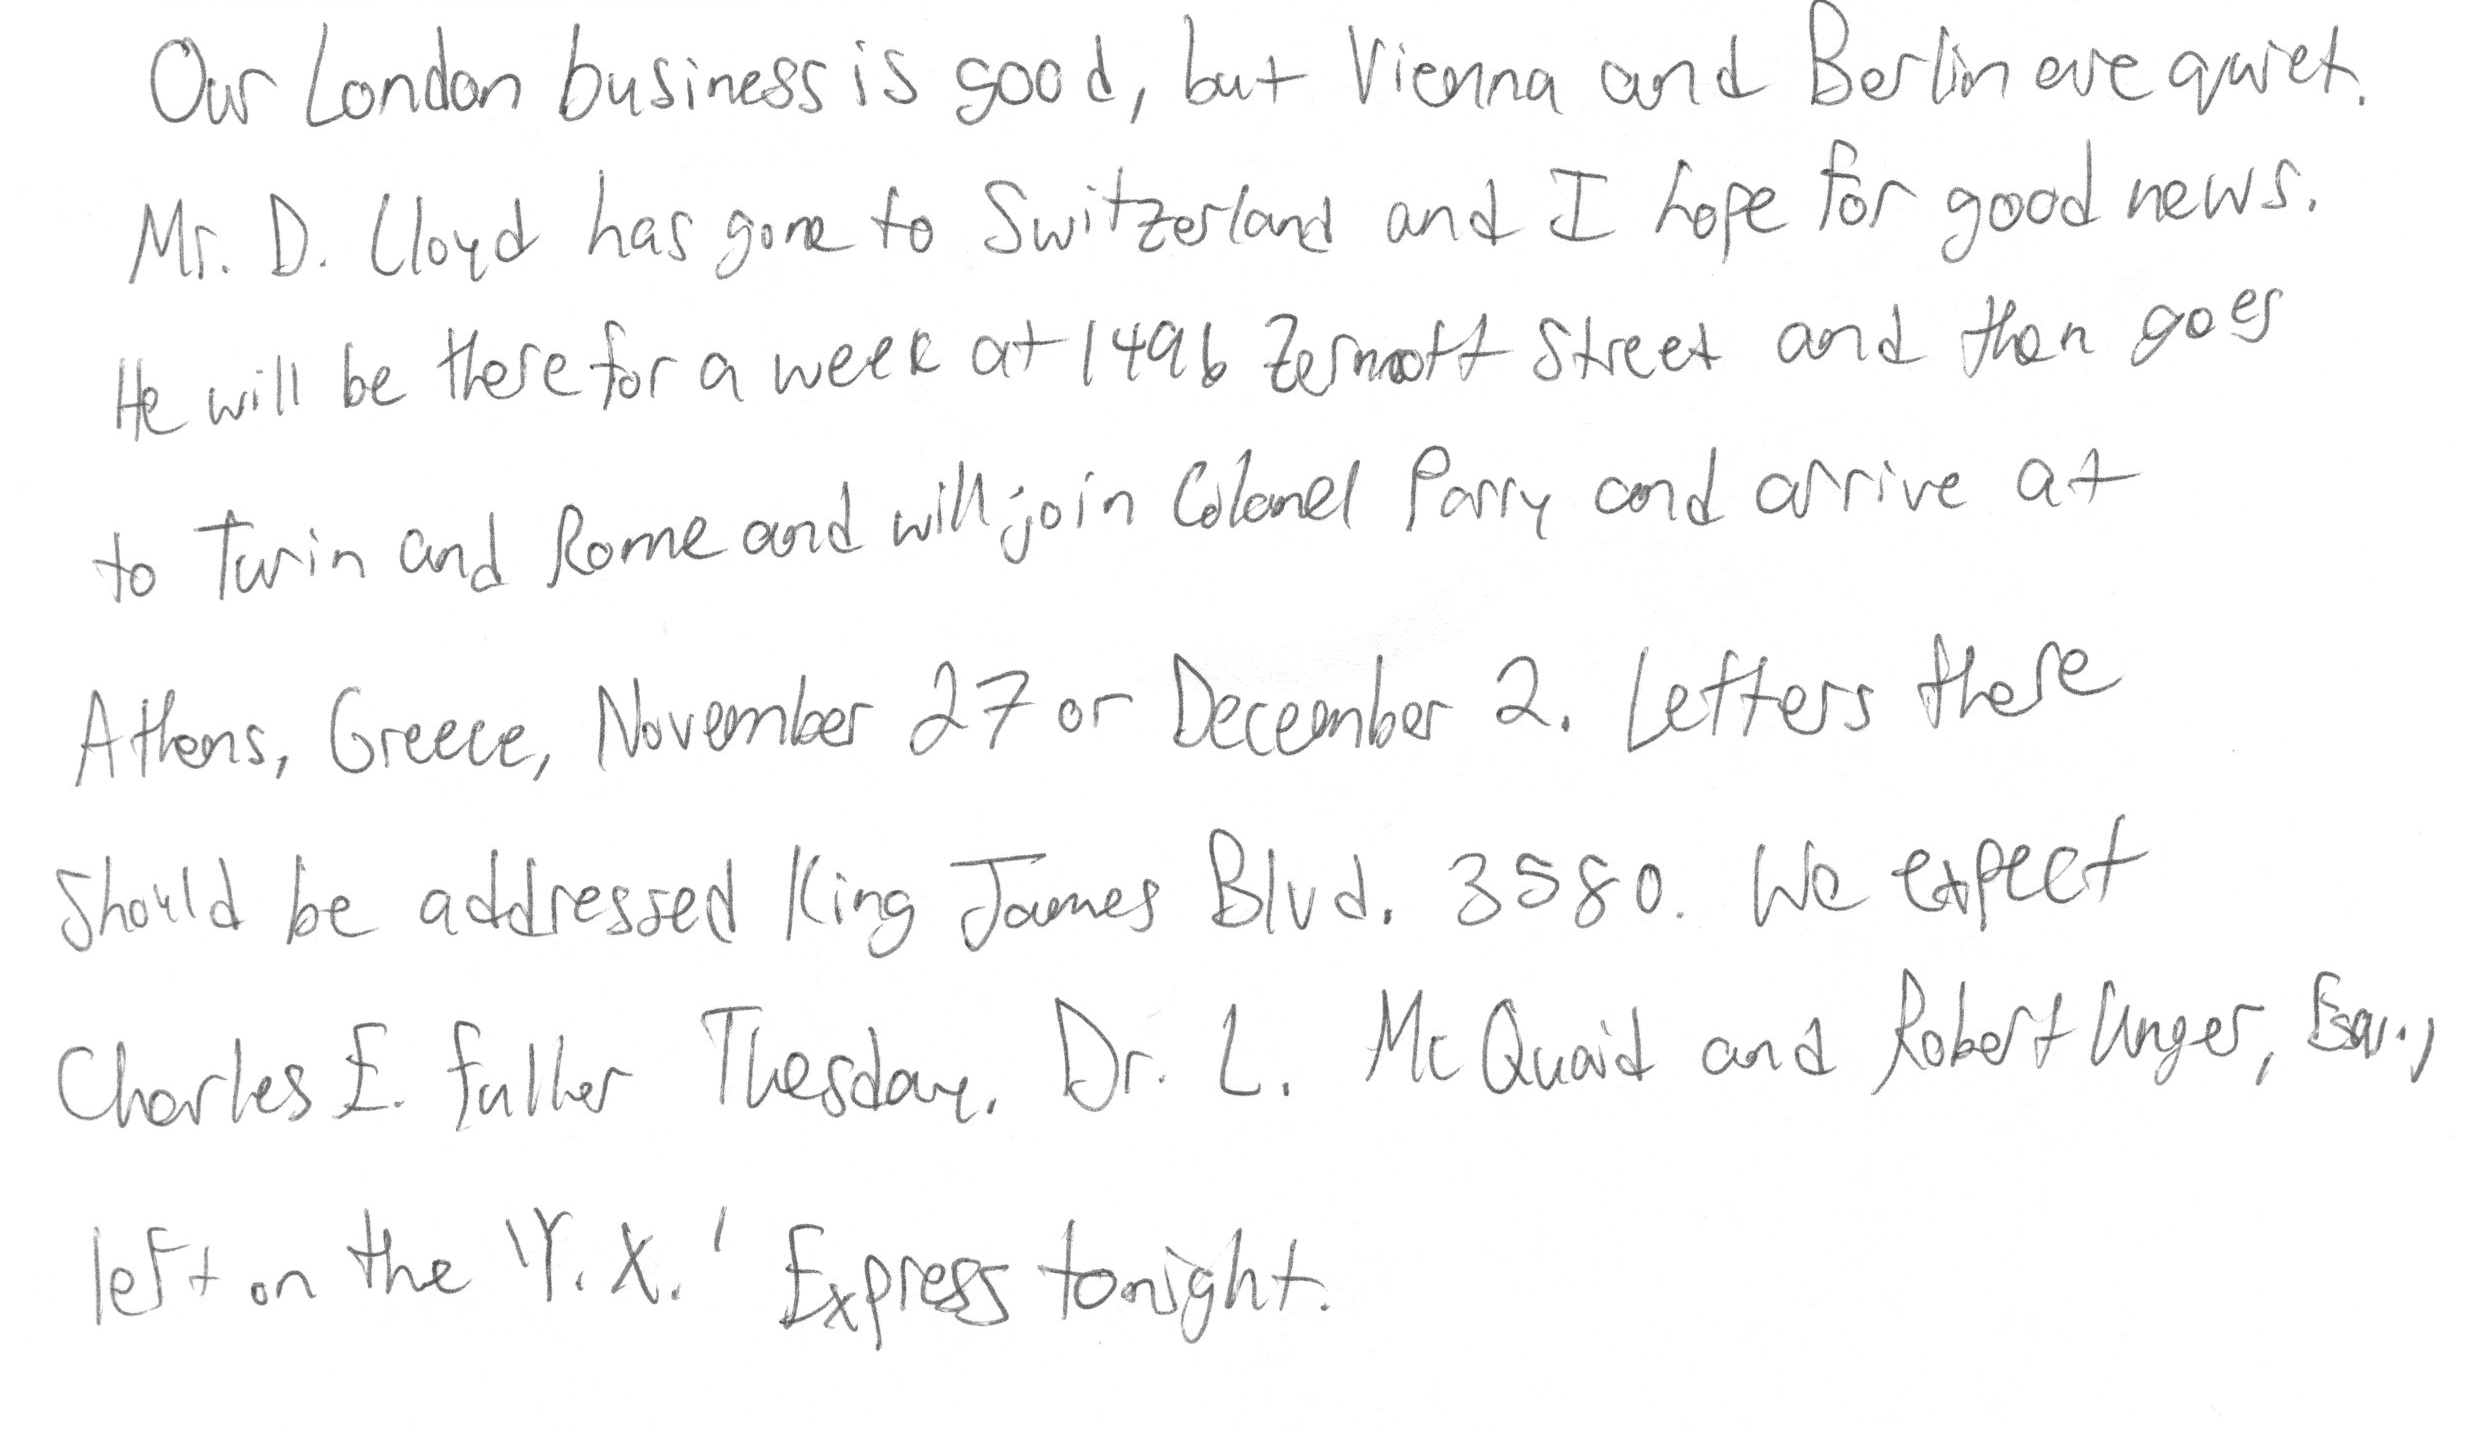 Our London business is good, but Vienna and Berlin are quiet.
Mr. D. Lloyd has gone to Switzerland and I hope for good news.
He will be there for a week at 1496 Zermott Street and then goes
to Turin and Rome and will join Colonel Parry and arrive at
Athens, Greece, November 27 or December 2. Letters there
should be addressed King James Blvd. 3580. We expect
Charles E. Fuller Tuesday. Dr. L. McQuaid and Robert Unger, Esq.,
left on the 'Y.X.' Express tonight.